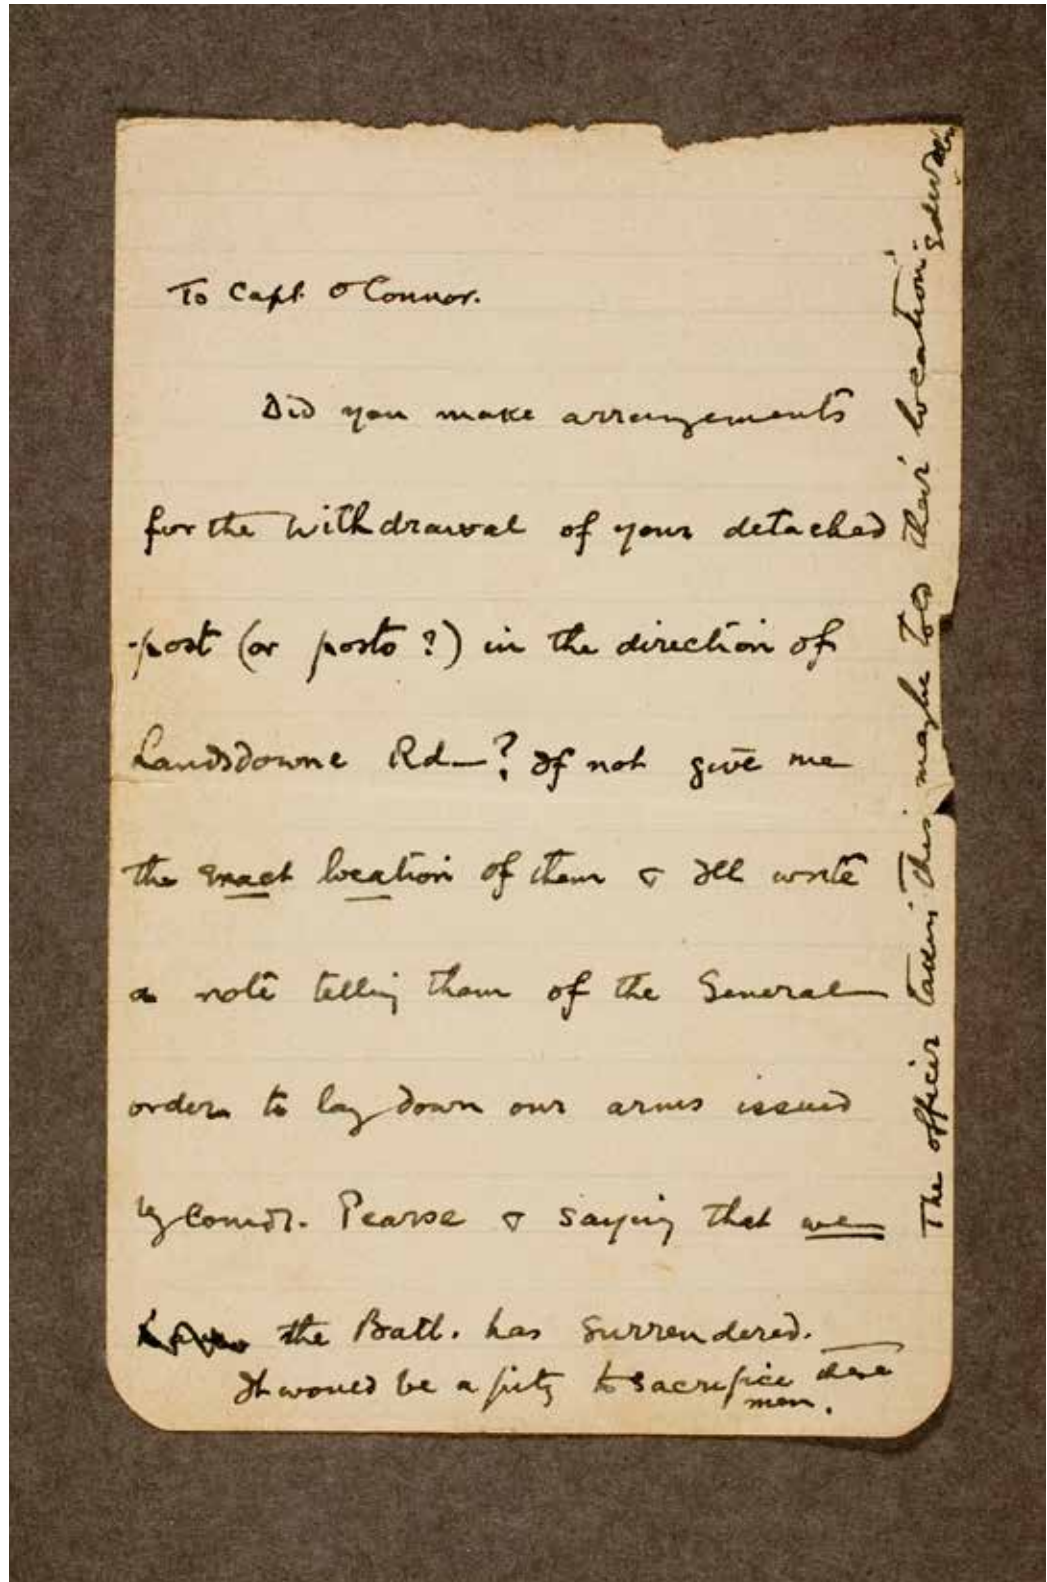 To Capt. O'Connor.
Did you make arrangements
for the withdrawal of your detached
post (or posts?) in the direction of
Landsdowne Rd—? If not give me
the exact location of them & I'll write
a note telling them of the General
order to lay down our arms issued
by Comdt. Pearse & saying that we
have the Batt. has surrendered.
It would be a pity to sacrifice these
men.
The officer taking this maybe told their location.